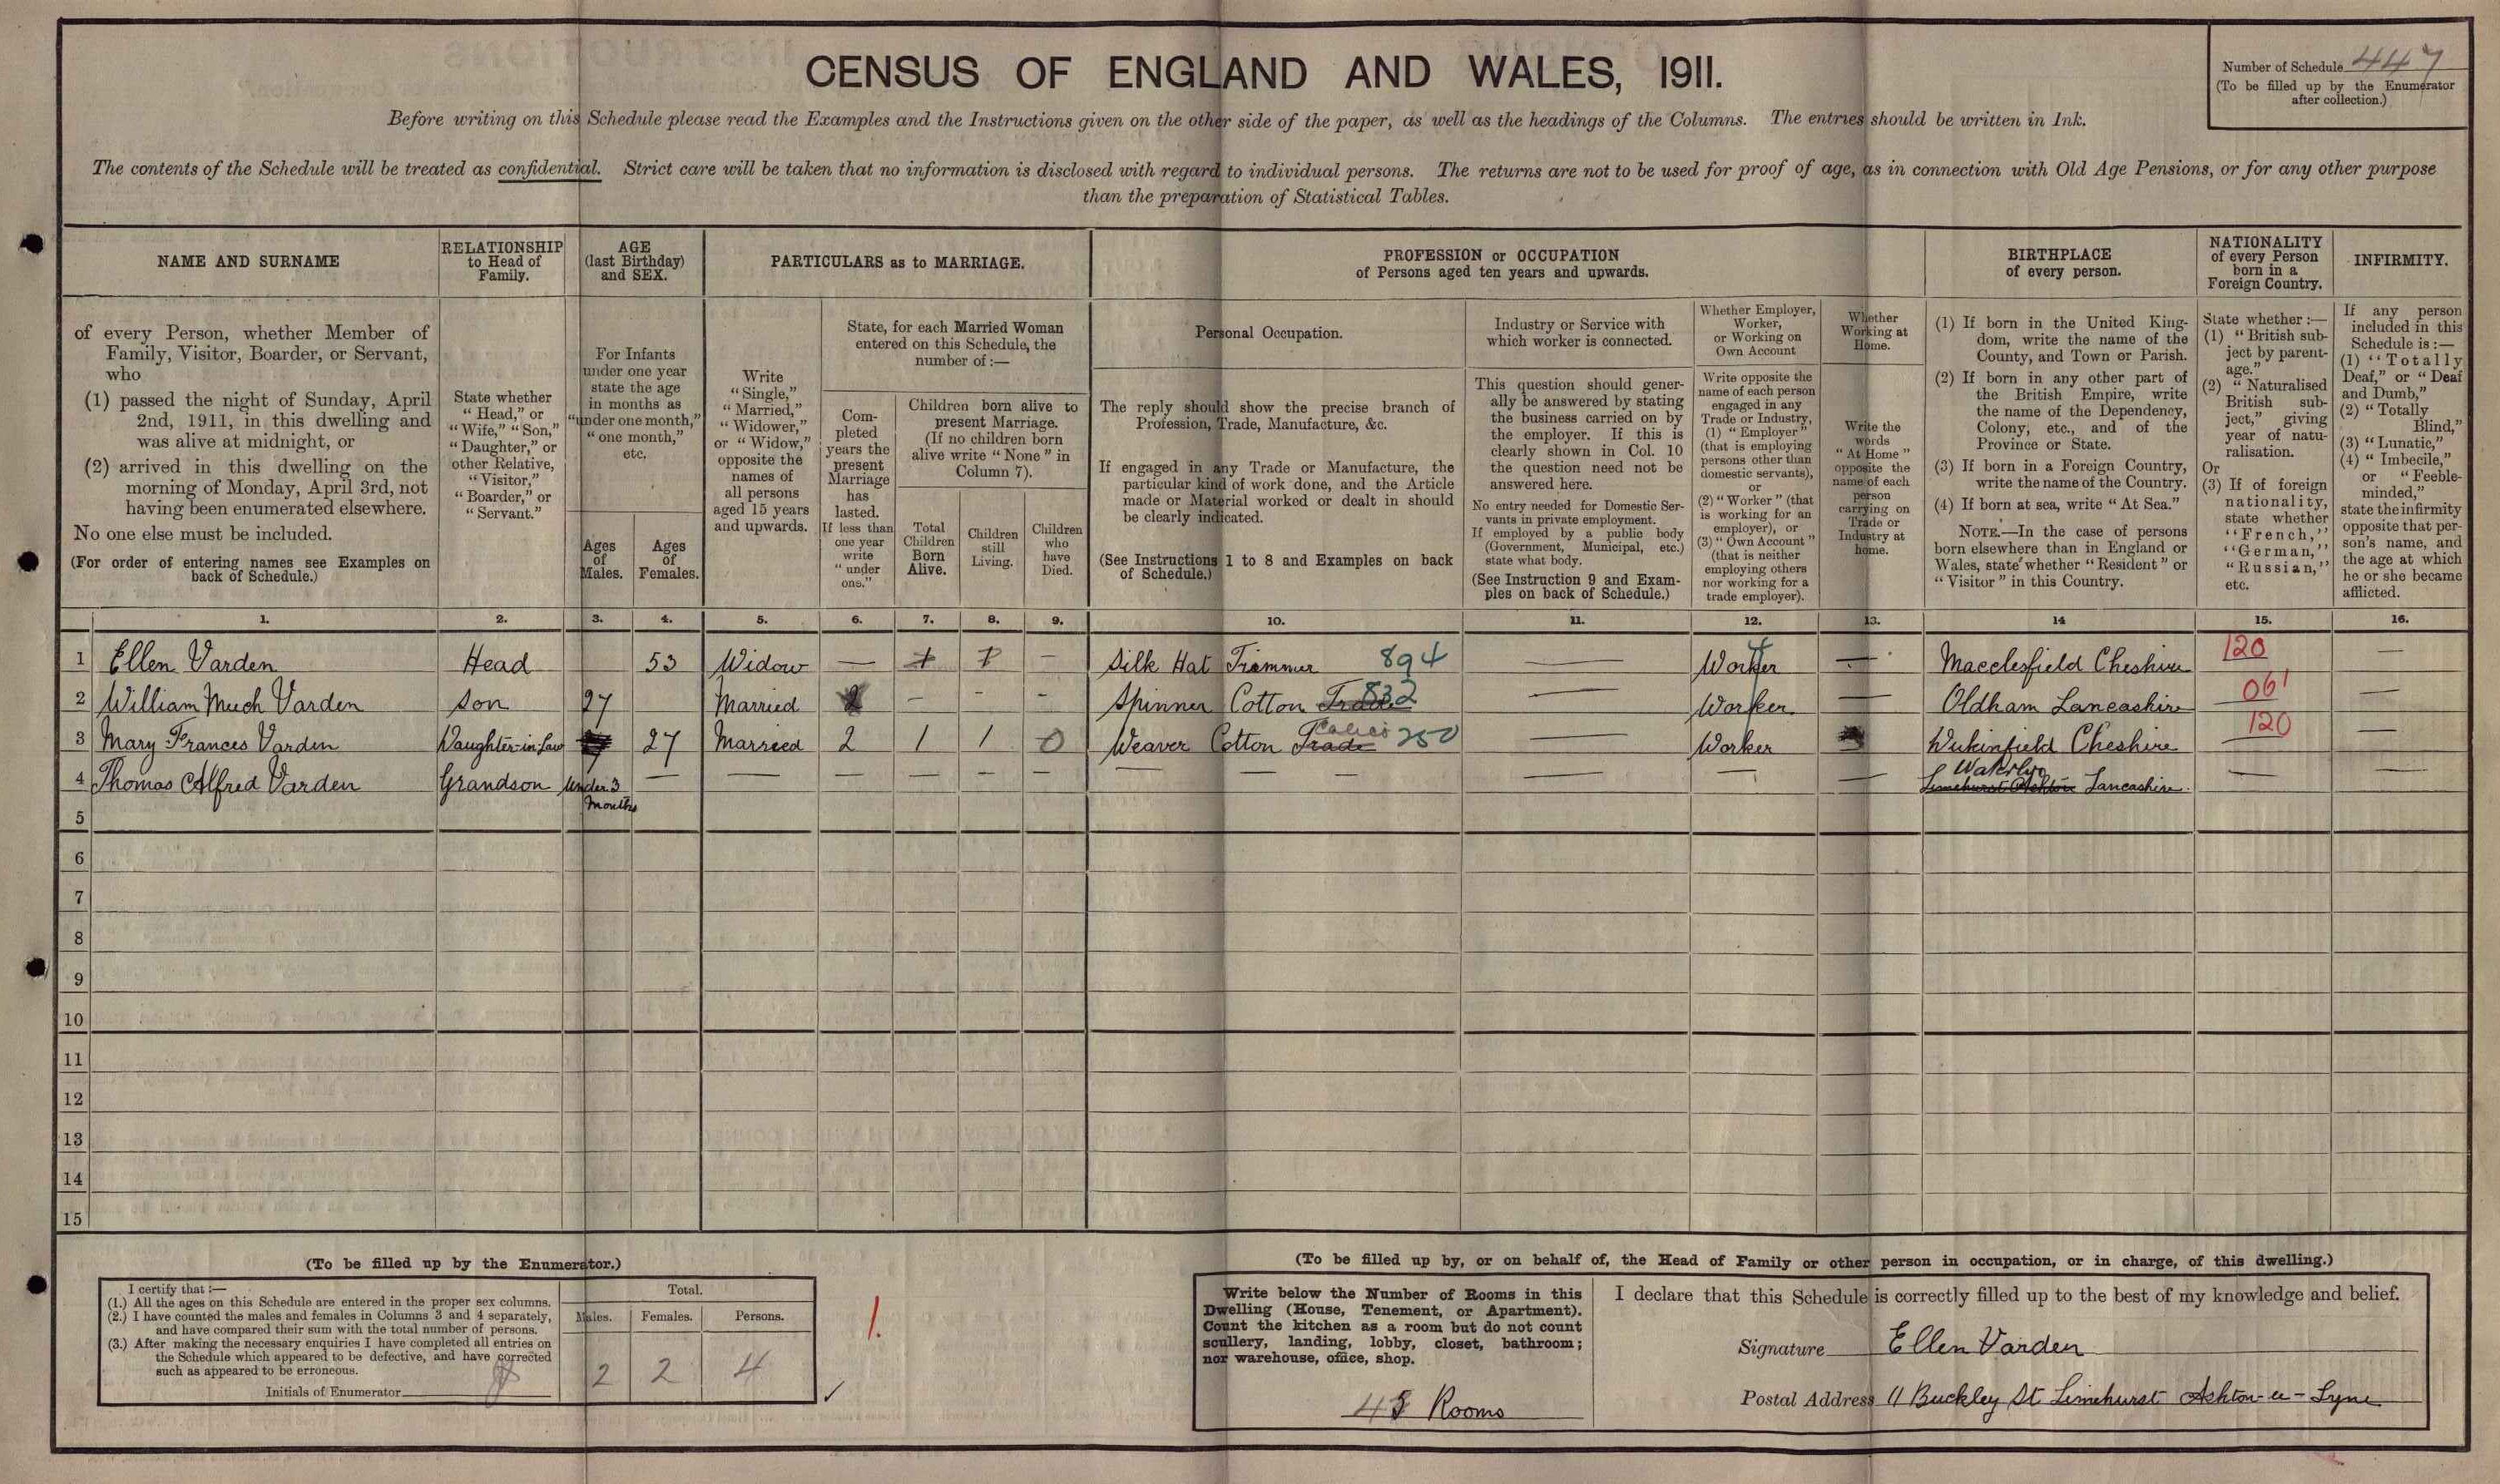 CENSUS OF ENGLAND AND WALES, 1911.
Number of Schedule 447
(To be filled up by the Enumerator
after collection.)
Before writing on this Schedule please read the Examples and the Instructions given on the other side of the paper, as well as the headings of the Columns. The entries should be written in Ink.
The contents of the Schedule will be treated as confidential. Strict care will be taken that no information is disclosed with regard to individual persons. The returns are not to be used for proof of age, as in connection with Old Age Pensions, or for any other purpose
than the preparation of Statistical Tables.
NAME AND SURNAME
of every Person, whether Member of
Family, Visitor, Boarder, or Servant,
who
(1) passed the night of Sunday, April
2nd, 1911, in this dwelling and
was alive at midnight, or
(2) arrived in this dwelling on the
morning of Monday, April 3rd, not
having been enumerated elsewhere.
No one else must be included.
(For order of entering names see Examples on
back of Schedule.)
RELATIONSHIP
to Head of
Family.
State whether
"Head," or
"Wife," "Son,"
"Daughter," or
other Relative,
"Visitor,"
"Boarder," or
"Servant."
AGE
(last Birthday)
and SEX.
For Infants
under one year
state the age
in months as
"under one month,"
"one month,"
etc.
Ages
of
Males.
Ages
of
Females.
PARTICULARS as to MARRIAGE.
Write
"Single,"
"Married,"
"Widower,"
or "Widow,"
opposite the
names of
all persons
aged 15 years
and upwards.
State, for each Married Woman
entered on this Schedule, the
number of :—
Com-
pleted
years the
present
Marriage
has
lasted.
If less than
one year
write
"under
one."
Children born alive to
present Marriage.
(If no children born
alive write "None" in
Column 7).
Total
Children
Born
Alive.
Children
still
Living.
Children
who
have
Died.
PROFESSION or OCCUPATION
of Persons aged ten years and upwards.
Personal Occupation.
The reply should show the precise branch of
Profession, Trade, Manufacture, &c.
If engaged in any Trade or Manufacture, the
particular kind of work done, and the Article
made or Material worked or dealt in should
be clearly indicated.
(See Instructions 1 to 8 and Examples on back
of Schedule.)
Industry or Service with
which worker is connected.
This question should gener-
ally be answered by stating
the business carried on by
the employer. If this is
clearly shown in Col. 10
the question need not be
answered here.
No entry needed for Domestic Ser-
vants in private employment.
If employed by a public body
(Government, Municipal, etc.)
state what body.
(See Instruction 9 and Exam-
ples on back of Schedule.)
Whether Employer,
Worker,
or Working on
Own Account
Write opposite the
name of each person
engaged in any
Trade or Industry,
(1) "Employer"
(that is employing
persons other than
domestic servants),
or
(2) "Worker" (that
is working for an
employer), or
(3) "Own Account"
(that is neither
employing others
nor working for a
trade employer).
Whether
Working at
Home.
Write the
words
"At Home"
opposite the
name of each
person
carrying on
Trade or
Industry at
home.
BIRTHPLACE
of every person.
(1) If born in the United King-
dom, write the name of the
County, and Town or Parish.
(2) If born in any other part of
the British Empire, write
the name of the Dependency,
Colony, etc., and of the
Province or State.
(3) If born in a Foreign Country,
write the name of the Country.
(4) If born at sea, write "At Sea."
NOTE.—In the case of persons
born elsewhere than in England or
Wales, state whether "Resident" or
"Visitor" in this Country.
NATIONALITY
of every Person
born in a
Foreign Country.
State whether :—
(1) "British sub-
ject by parent-
age."
(2) "Naturalised
British sub-
ject," giving
year of natu-
ralisation.
Or
(3) If of foreign
nationality,
state whether
"French,"
"German,"
"Russian,"
etc.
INFIRMITY.
If any person
included in this
Schedule is :—
(1) "Totally
Deaf," or "Deaf
and Dumb,"
(2) "Totally
Blind,"
(3) "Lunatic,"
(4) "Imbecile,"
or "Feeble-
minded,"
state the infirmity
opposite that per-
son's name, and
the age at which
he or she became
afflicted.
1. 2. 3. 4. 5. 6. 7. 8. 9. 10. 11. 12. 13. 14 15. 16.
1 Ellen Varden Head 53 Widow — — Silk Hat Trimmer 894 — Worker — Macclesfield Cheshire 120 —
2 William Varden Son 27 Married — - - Spinner Cotton Trade 832 — Worker — Oldham Lancashire 061 —
3 Mary Frances Varden Daughter-in-Law 27 Married 2 1 1 0 Weaver Cotton Trade Calico 250 — Worker Dukinfield Cheshire 120 —
4 Thomas Alfred Varden Grandson under 3 months — — — — — — — — — — — Limehurst Ashton Waterloo Lancashire — —
5
6
7
8
9
10
11
12
13
14
15
(To be filled up by the Enumerator.)
I certify that :—
(1.) All the ages on this Schedule are entered in the proper sex columns.
(2.) I have counted the males and females in Columns 3 and 4 separately,
and have compared their sum with the total number of persons.
(3.) After making the necessary enquiries I have completed all entries on
the Schedule which appeared to be defective, and have corrected
such as appeared to be erroneous.
Initials of Enumerator
Total.
Males. Females. Persons.
2 2 4
1.
(To be filled up by, or on behalf of, the Head of Family or other person in occupation, or in charge, of this dwelling.)
Write below the Number of Rooms in this
Dwelling (House, Tenement, or Apartment).
Count the kitchen as a room but do not count
scullery, landing, lobby, closet, bathroom;
nor warehouse, office, shop.
4 Rooms
I declare that this Schedule is correctly filled up to the best of my knowledge and belief.
Signature Ellen Varden
Postal Address 11 Buckley St Limehurst Ashton-u-Lyne